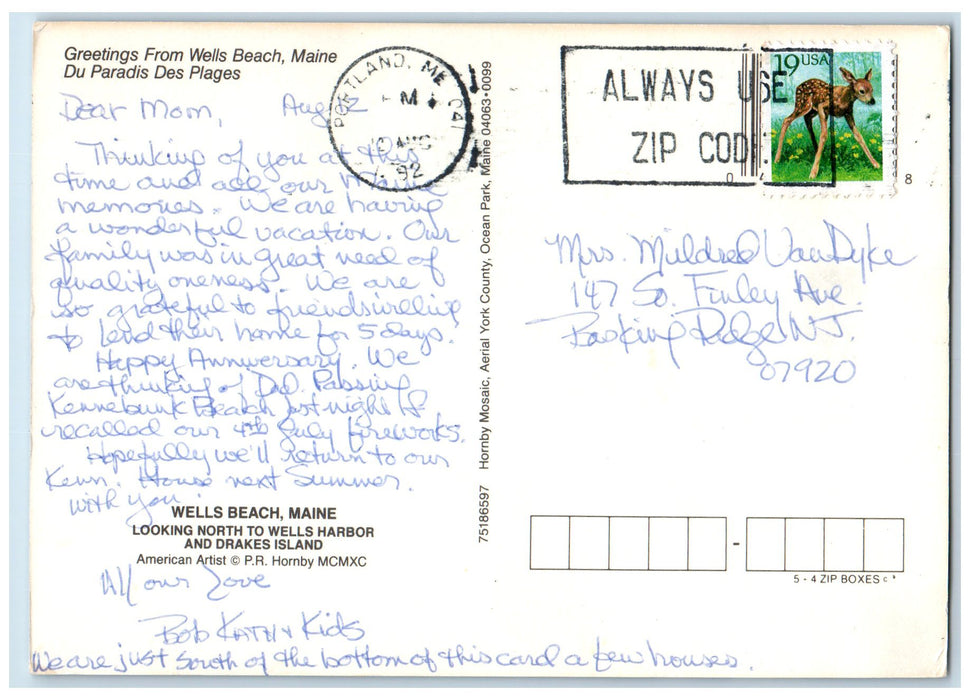 Greetings From Wells Beach, Maine
Du Paradis Des Plages
Dear Mom, Aug 12
Thinking of you at this
time and all our Maine
memories. We are having
a wonderful vacation. Our
family was in great need of
quality oneness. We are
so grateful to friends willing
to lend their home for 5 days.
Happy Anniversary. We
are thinking of Dad. Passing
Kennebunk Beach last night I
recalled our 4th July fireworks.
Hopefully we'll return to our
Kenn. House next Summer.
with you.
WELLS BEACH, MAINE
LOOKING NORTH TO WELLS HARBOR
AND DRAKES ISLAND
American Artist © P.R. Hornby MCMXC
All our Love
Bob Kathy & Kids
We are just South of the bottom of this card a few houses.
75186597 Hornby Mosaic, Aerial York County, Ocean Park, Maine 04063-0099
PORTLAND, ME 041
PM
AUG
92
ALWAYS USE
ZIP CODE
19 USA
0 8
Mrs. Mildred VanDyke
147 So. Finley Ave.
Basking Ridge NJ.
07920
-
5 - 4 ZIP BOXES